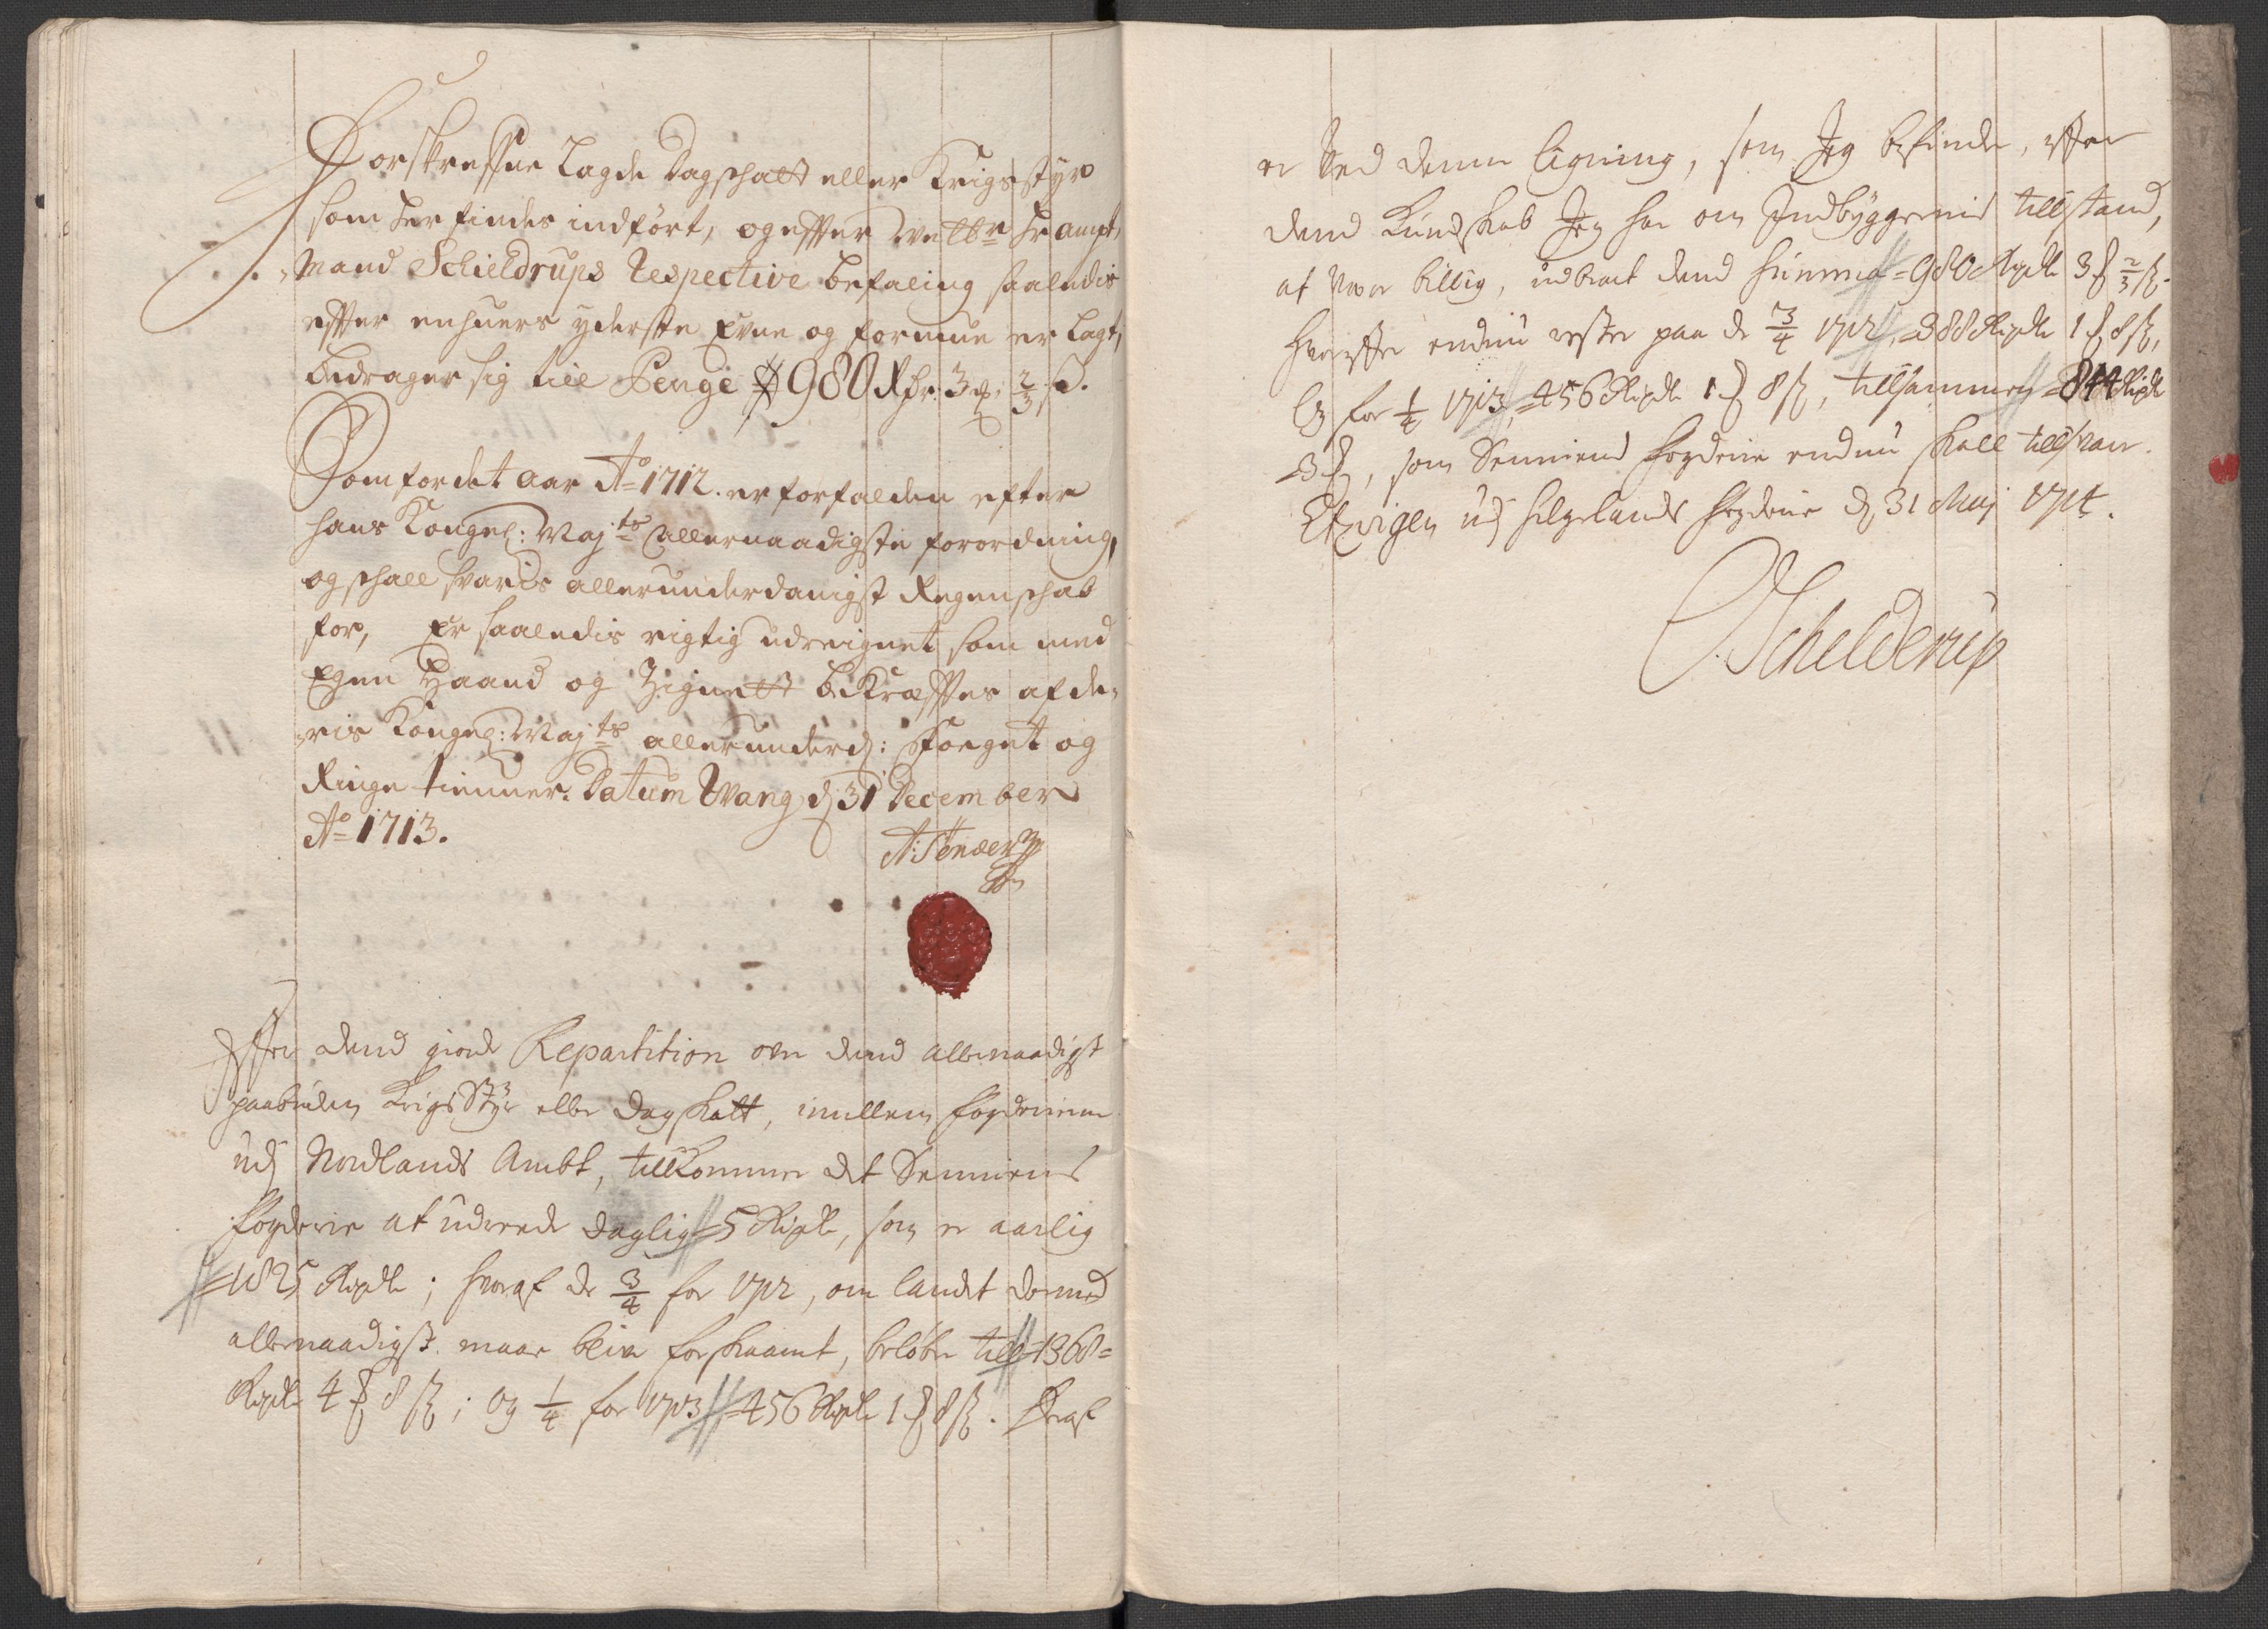 Forskreffne Lagde Dagschatt eller Krigsstyr
som her findes indført, og effter Wellbr Hr ampt,
Mand Schieldrups Respective befaling saaledis
effter enhuers yderste Evne og formue er lagt,
bedrager sig till Penge 980 Rdr 3 ₰ 2/3 ß.
Som for det Aar Ao 1712. er forfalden efter
hans Kongel: Majts allernaadigste forordning,
og schall svaris allerunderdanigst Regenschab
for, Er saaledis rigtig udreignet som med
Egen Haand og Zignett bekræfftes af de,
ris Kongel: Majts allerunderd: Foeget og
Ringe tienner. Datum Wang d 31 December
Ao 1713.
A: Tønder
Effter dend giorde Repartition over dend allernaadigst
paabudne Krigs Styr eller dag skatt, imellem fogderierne
udj Nordlands Ambt, tillkommer det Senniens
fogderie at udreede daglig 5 Rixdlr, som er aarlig
1825 Rixdlr; hvoraf de 3/4 for 1712, om landet dermed
allernaadigst maae blive forskaant, beløber till 1368
Rixdlr 4 ₰ 8 ß; og 1/4 for 1713 456 Rixdlr 1 ₰ 8 ß. Heraf
er ved denne Ligning, som Jeg befinder, effter
dend Kundskab Jeg har om Indbyggernis tillstand,
at være billig, udbragt dend summa 980 Rixdlr 3 ₰ 2/3 ß.
hvoreffter endnu rester paa de 3/4 1712, 388 Rixdlr 1 ₰ 8 ß,
Og for 1/4 1713, 456 Rixdlr 1 ₰ 8 ß, tillsammen 844 Rixdlr
3 ₰, som Senniens fogderie endnu skall tillsvare.
udj Helgelands fogderie d 31 Maj 1714.
Schelderup